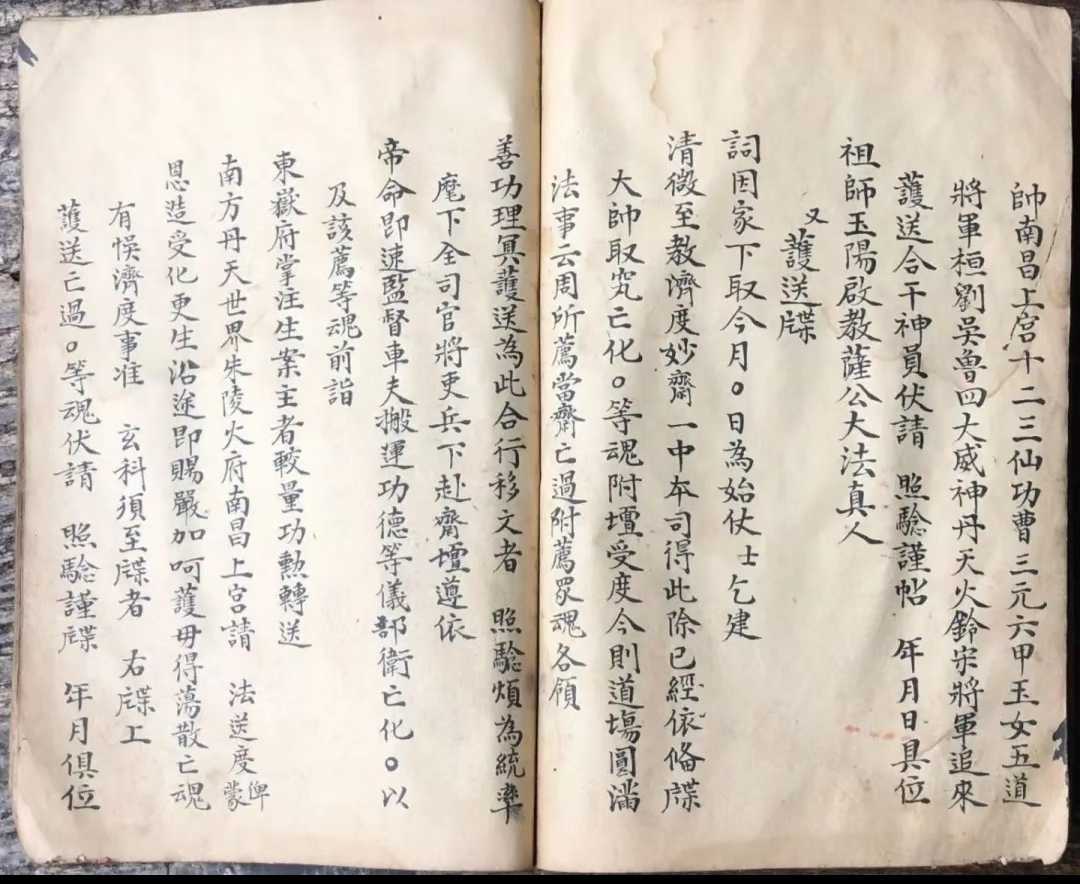 帥南昌上宮十二三仙功曹三元六甲玉女五道
將軍桓劉吳魯四大威神丹天火鈴宋將軍追來
護送合干神員伏請　照驗謹帖　年月日具位
祖師玉陽啟教薩公大法真人
又護送牒
詞因家下取今月○日為始仗士乞建
清微至教濟度妙齋一中本司得此除已經依俻牒
大帥取究亡化○等魂附壇受度今則道場圓滿
法事云周所薦當齋亡過附薦眾魂各領
善功理冥護送為此合行移文者　照驗煩為統率
麾下全司官將吏兵下赴齋壇遵依
帝命即速監督車夫搬運功德等儀部衛亡化○以
及該薦等魂前詣
東嶽府掌注生案主者較量功勲轉送
南方丹天世界朱陵火府南昌上宮請　法送度俾蒙
恩造受化更生沿途即賜嚴加呵護毋得蕩散亡魂
有悞濟度事准　玄科須至牒者　右牒上
護送亡過○等魂伏請　照驗謹牒　年月俱位